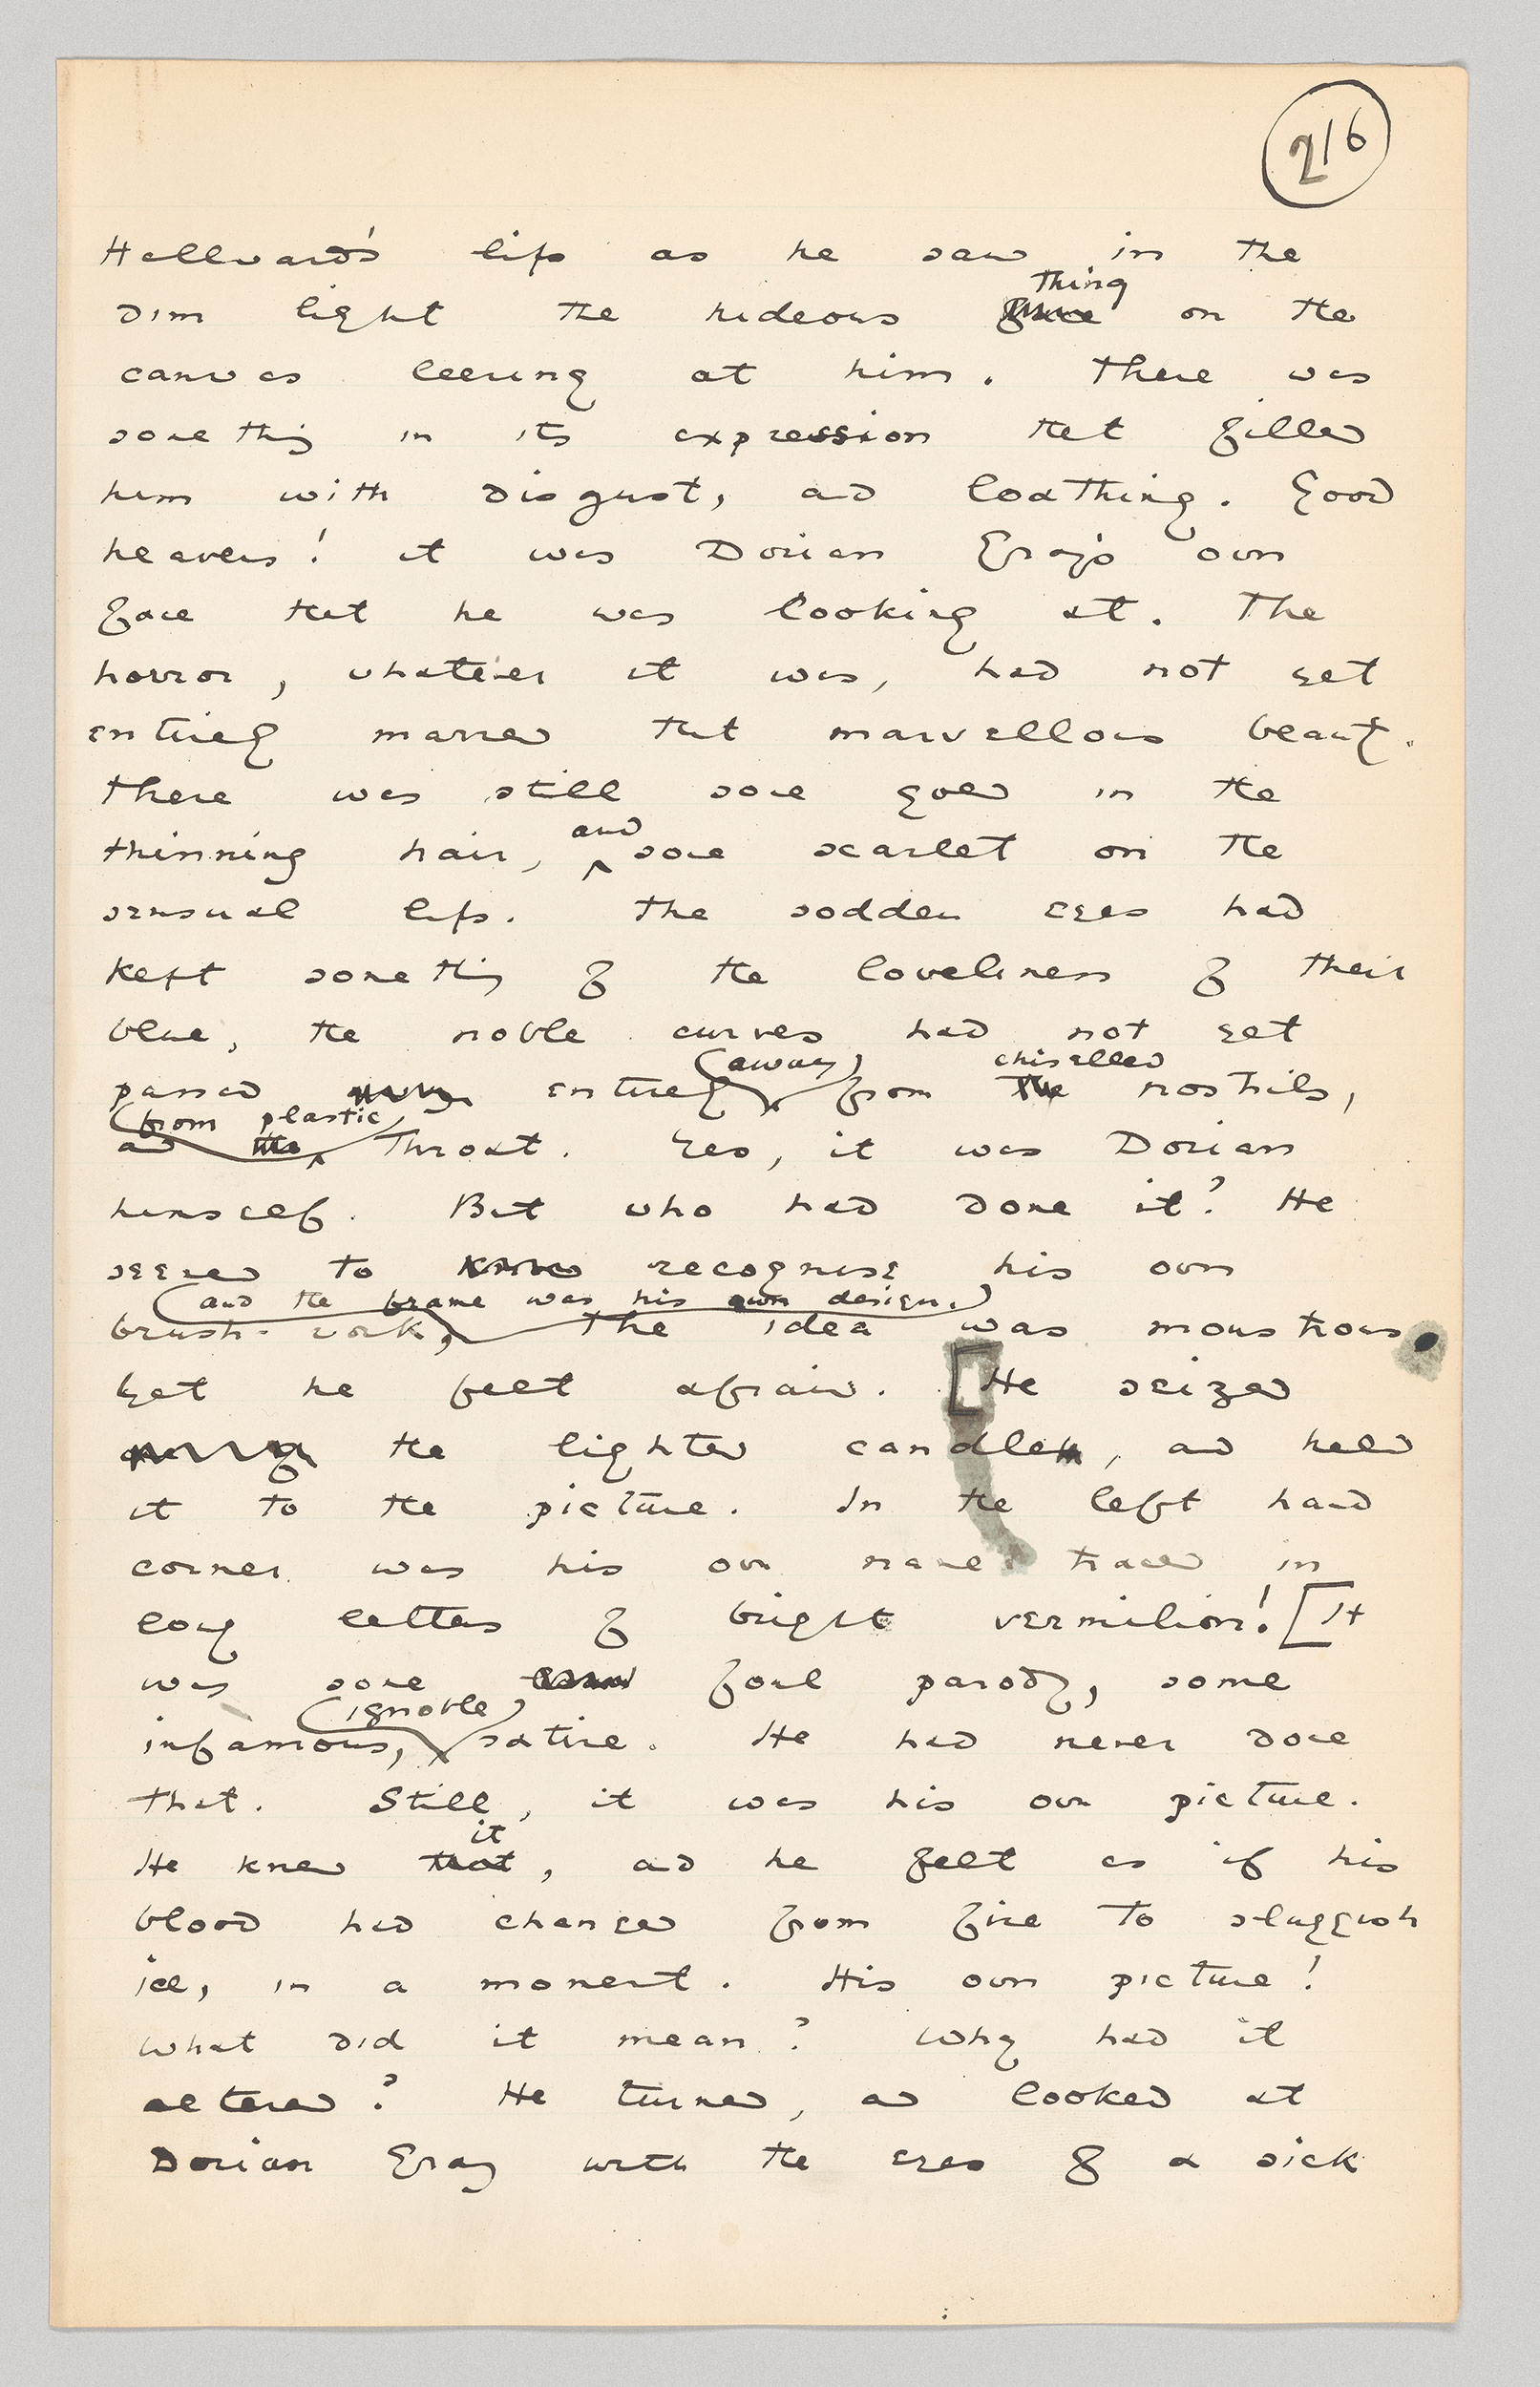 216
Hallward's lips as he saw in the
thing
dim light the hideous face on the
canvas leering at him. There was
something in its expression that filled
him with disgust, and loathing. Good
heavens! it was Dorian Gray's own
face that he was looking at. The
horror, whatever it was, had not yet
entirely marred that marvellous beauty.
There was still some gold in the
and
thinning hair, some scarlet on the
sensual lips. The sodden eyes had
kept something of the loveliness of their
blue, the noble curves had not yet
away chiselled
passed entirely from the nostrils,
from plastic
and the throat. Yes, it was Dorian
himself. But who had done it? He
seemed to know recognise his own
and the frame was his own design.
brush-work, The idea was monstrous
Yet he felt afraid. [He seized
the lighted candle, and held
it to the picture. In the left hand
corner was his own name traced in
long letters of bright vermilion! [It
was some foul parody, some
ignoble
infamous, satire. He had never done
that. Still, it was his own picture.
it
He knew that, and he felt as if his
blood had changed from fire to sluggish
ice, in a moment. His own picture!
What did it mean? Why had it
altered? He turned, and looked at
Dorian Gray with the eyes of a sick